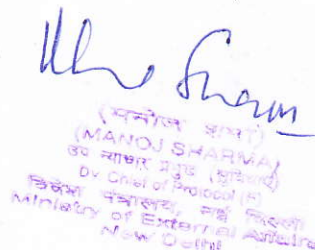 Sharma
(मनोज शर्मा)
(MANOJ SHARMA)
उप न्याचार प्रमुख (सुविधाएं)
Dy Chief of Protocol (P)
विदेश मंत्रालय, नई दिल्ली
Ministry of External Affairs
New Delhi